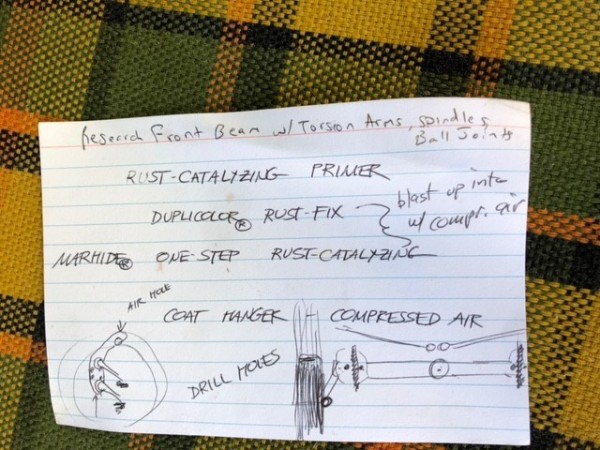 Research Front Beam w/ Torsion Arms, Spindles
Ball Joints
RUST-CATALYZING PRIMER
DUPLICOLOR® RUST-FIX
blast up into
w/ compr. air
MARHIDE® ONE-STEP RUST-CATALYZING
AIR HOLE
COAT HANGER - COMPRESSED AIR
DRILL HOLES